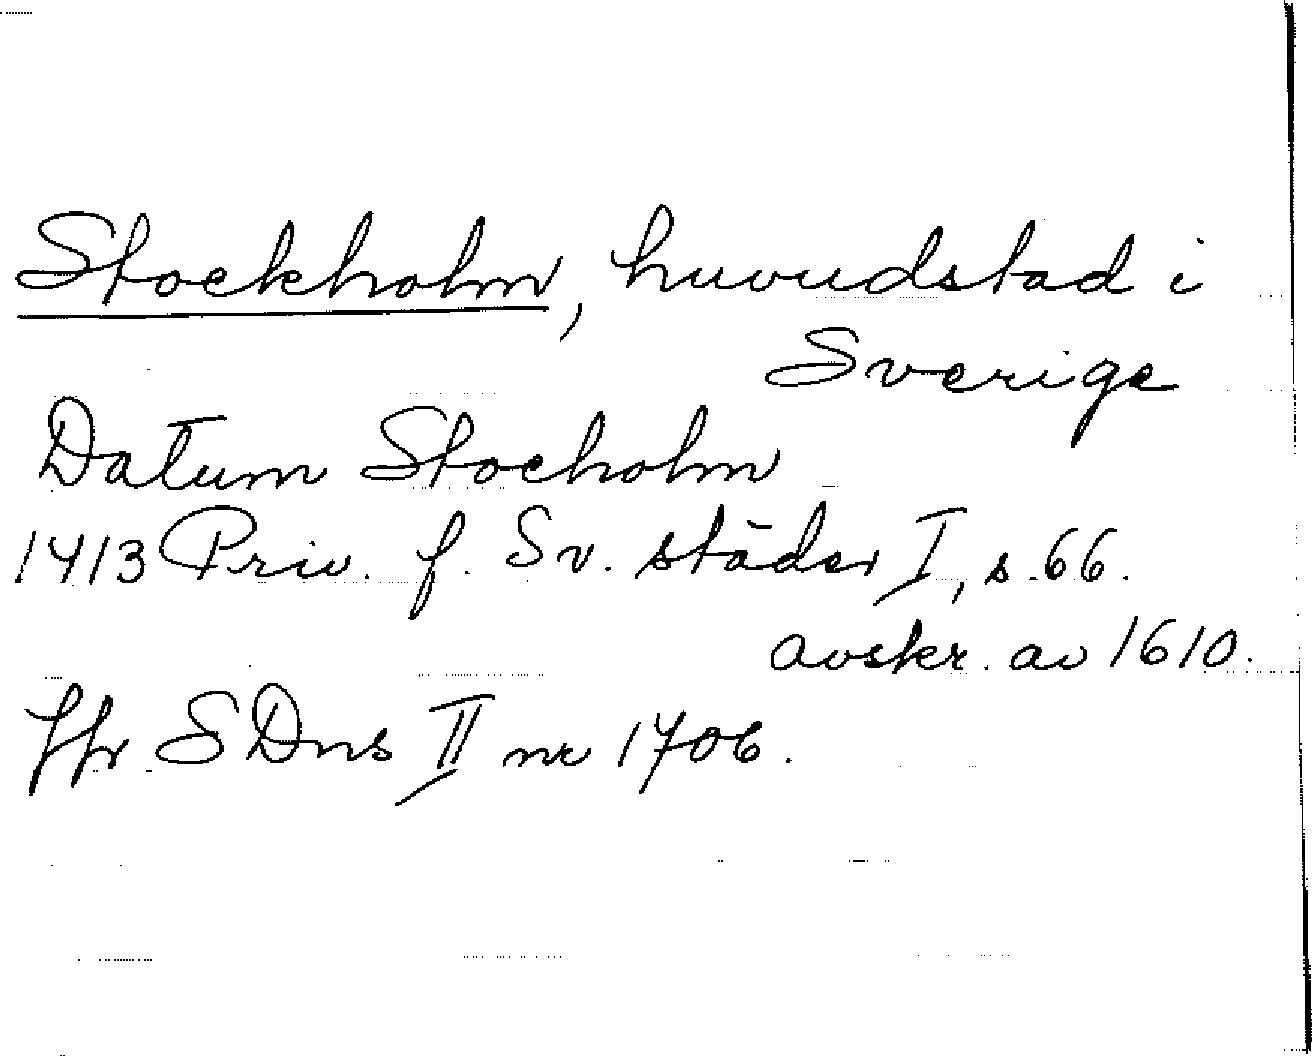 Stockholm, huvudstad i
Sverige
Datum Stocholm
1413 Priv. f. Sv. städer I, s. 66.
avskr. av 1610.
Jfr SDns II nr 1706.